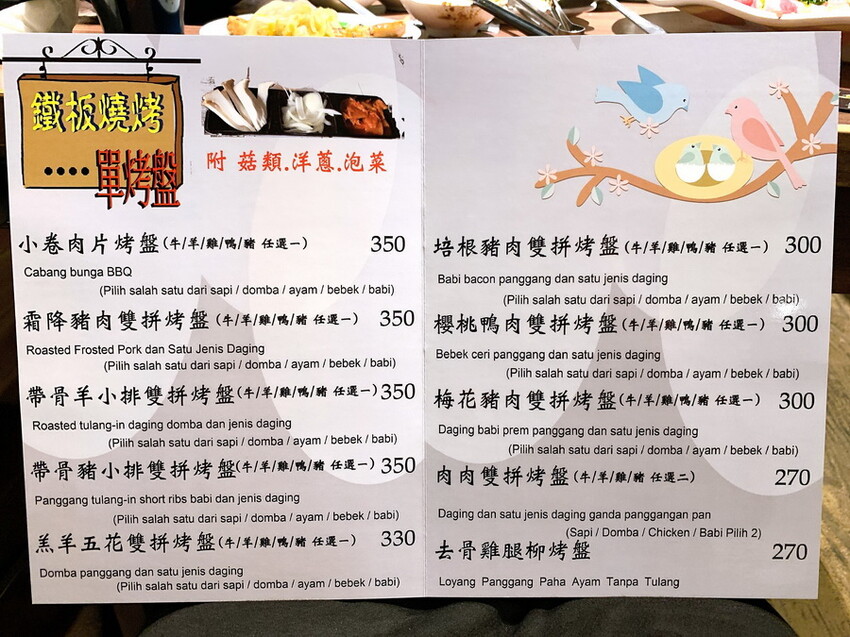 鐵板燒烤
....單烤盤
附 菇類.洋蔥.泡菜
小卷肉片烤盤(牛/羊/雞/鴨/豬 任選一) 350
Cabang bunga BBQ
(Pilih salah satu dari sapi / domba / ayam / bebek / babi)
霜降豬肉雙拼烤盤(牛/羊/雞/鴨/豬 任選一) 350
Roasted Frosted Pork dan Satu Jenis Daging
(Pilih salah satu dari sapi / domba / ayam / bebek / babi)
帶骨羊小排雙拼烤盤(牛/羊/雞/鴨/豬 任選一) 350
Roasted tulang-in daging domba dan jenis daging
(Pilih salah satu dari sapi / domba / ayam / bebek / babi)
帶骨豬小排雙拼烤盤(牛/羊/雞/鴨/豬 任選一) 350
Panggang tulang-in short ribs babi dan jenis daging
(Pilih salah satu dari sapi / domba / ayam / bebek / babi)
羔羊五花雙拼烤盤(牛/羊/雞/鴨/豬 任選一) 330
Domba panggang dan satu jenis daging
(Pilih salah satu dari sapi / domba / ayam / bebek / babi)
培根豬肉雙拼烤盤(牛/羊/雞/鴨/豬 任選一) 300
Babi bacon panggang dan satu jenis daging
(Pilih salah satu dari sapi / domba / ayam / bebek / babi)
櫻桃鴨肉雙拼烤盤(牛/羊/雞/鴨/豬 任選一) 300
Bebek ceri panggang dan satu jenis daging
(Pilih salah satu dari sapi / domba / ayam / bebek / babi)
梅花豬肉雙拼烤盤(牛/羊/雞/鴨/豬 任選一) 300
Daging babi prem panggang dan satu jenis daging
(Pilih salah satu dari sapi / domba / ayam / bebek / babi)
肉肉雙拼烤盤(牛/羊/雞/豬 任選二) 270
Daging dan satu jenis daging ganda panggangan pan
(Sapi / Domba / Chicken / Babi Pilih 2)
去骨雞腿柳烤盤 270
Loyang Panggang Paha Ayam Tanpa Tulang